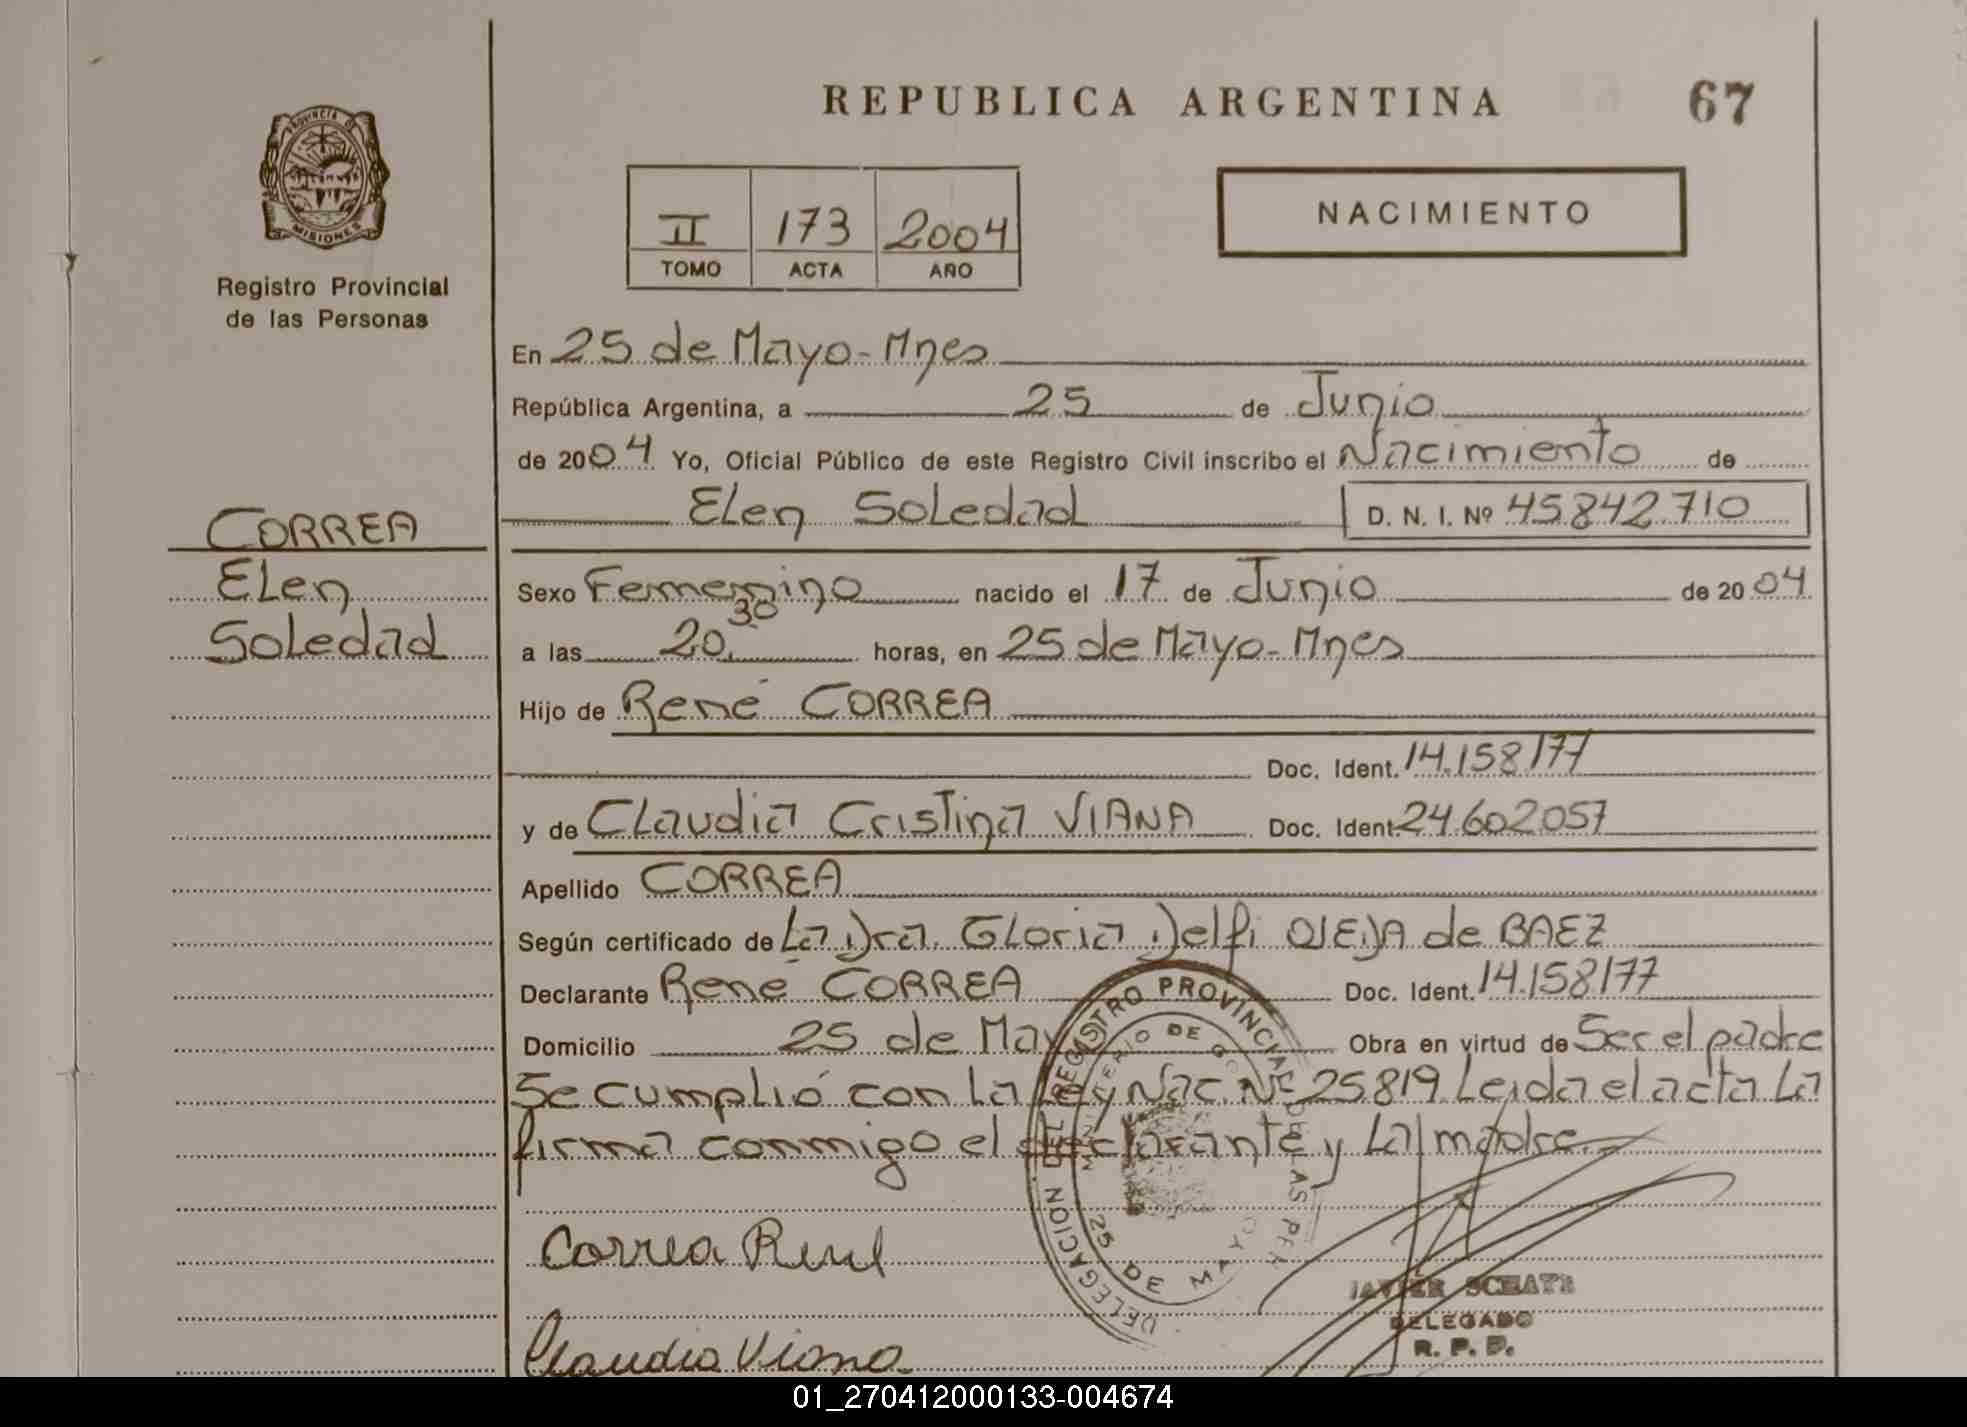 REPUBLICA ARGENTINA 67
PROVINCIA DE
MISIONES
Registro Provincial
de las Personas
II 173 2004
TOMO ACTA AÑO
NACIMIENTO
En 25 de Mayo-Mnes
República Argentina, a 25 de Junio
de 2004 Yo, Oficial Público de este Registro Civil inscribo el Nacimiento de
Elen Soledad D. N. I. Nº 45.842.710
CORREA
Elen
Soledad
Sexo Femenino nacido el 17 de Junio de 2004
a las 20.30 horas, en 25 de Mayo-Mnes
Hijo de René CORREA
Doc. Ident. 14.158177
y de Claudia Cristina VIANA Doc. Ident. 24.602.057
Apellido CORREA
Según certificado de La Dra. Gloria Delfi OJEDA de BAEZ
Declarante René CORREA Doc. Ident. 14.158177
Domicilio 25 de May Obra en virtud de Ser el padre
Se cumplió con La Ley Nac. Nº 25819. Leida el acta La
firma conmigo el declarante y La madre.
DELEGACION DEL REGISTRO PROVINCIAL DE LAS PER
MINISTERIO DE GO
25 DE MAYO
Correa René
JAVIER
DELEGADO
R. P. P.
Claudia Viana
01_270412000133-004674